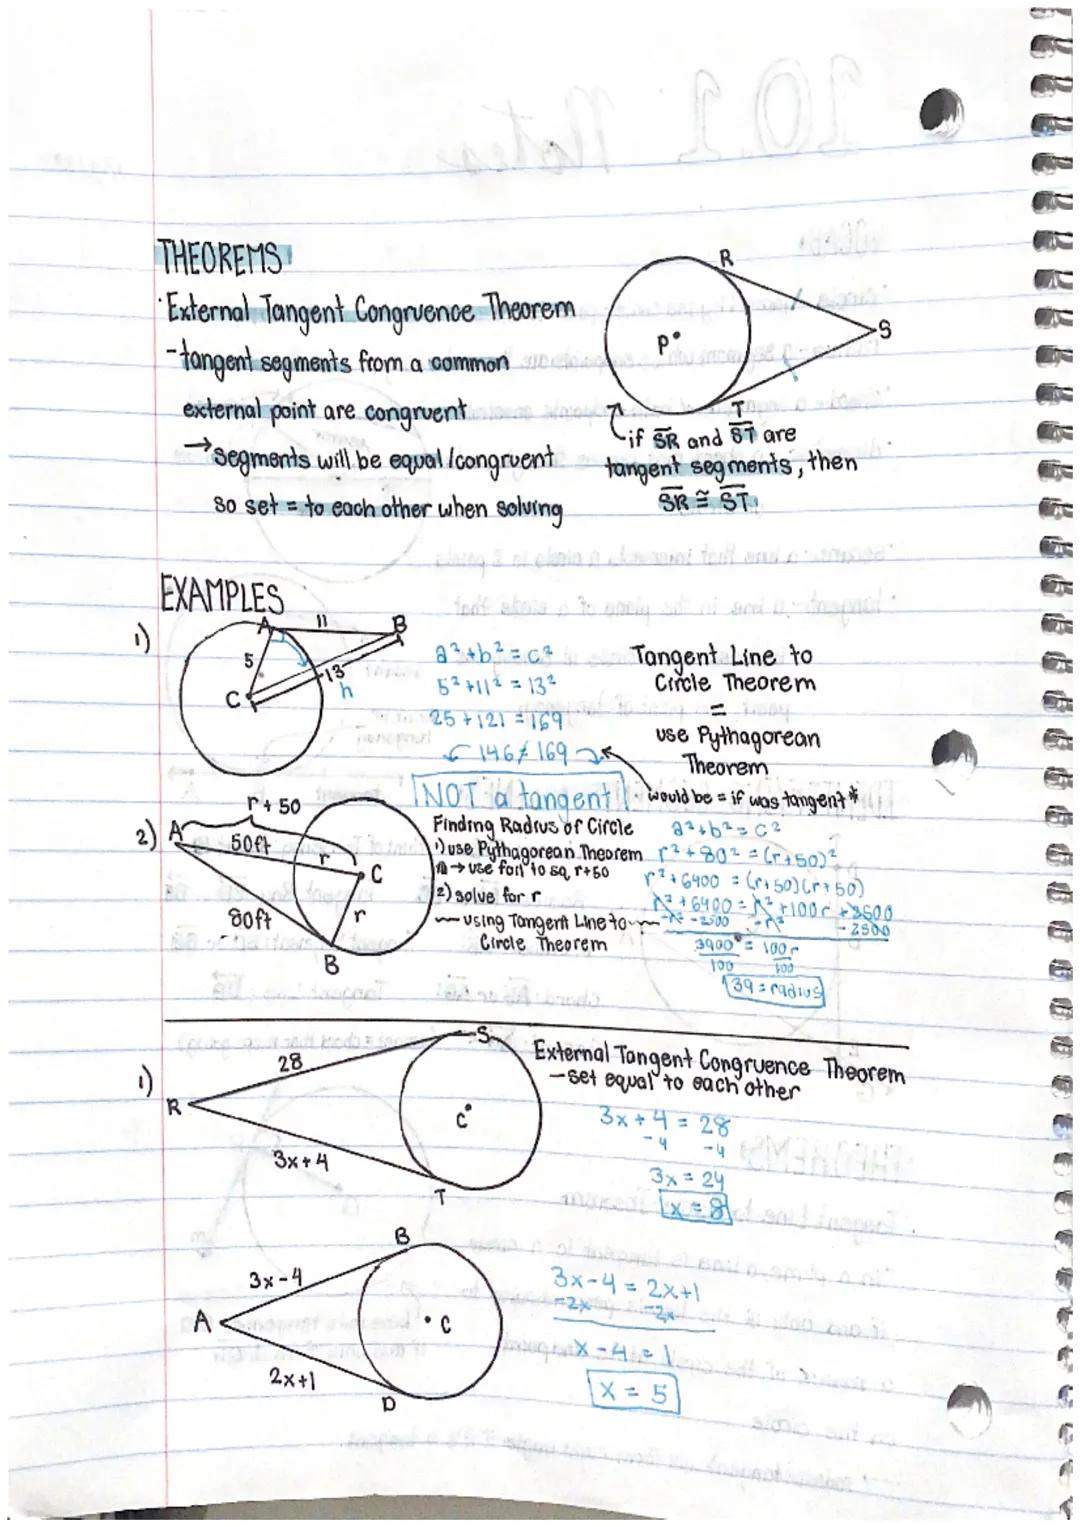 THEOREMS
· External Tangent Congruence Theorem
- tangent segments from a common
external point are congruent
→ segments will be equal/congruent
so set = to each other when solving
R
P
S
T
if SR and ST are
tangent segments, then
SR ≅ ST
EXAMPLES
1)
A 11 B
5
13
h
C
a² + b² = c²
5² + 11² = 13²
25 + 121 = 169
146 ≠ 169
NOT a tangent!
Tangent Line to
Circle Theorem
=
use Pythagorean
Theorem
would be = if was tangent *
2)
r + 50
A
50ft
r
C
80ft
r
B
Finding Radius of Circle
1) use Pythagorean Theorem
→ use foil to sq. r+50
2) solve for r
using Tangent Line to
Circle Theorem
a² + b² = c²
r² + 80² = (r+50)²
r² + 6400 = (r+50)(r+50)
r² + 6400 = r² + 100r + 2500
-r² -2500 -r² -2500
3900 = 100r
100 100
39 = radius
1)
28
S
R
C
3x+4
T
External Tangent Congruence Theorem
- set equal to each other
3x + 4 = 28
-4 -4
3x = 24
x = 8
B
3x-4
A
C
2x+1
D
3x-4 = 2x+1
-2x -2x
x - 4 = 1
x = 5